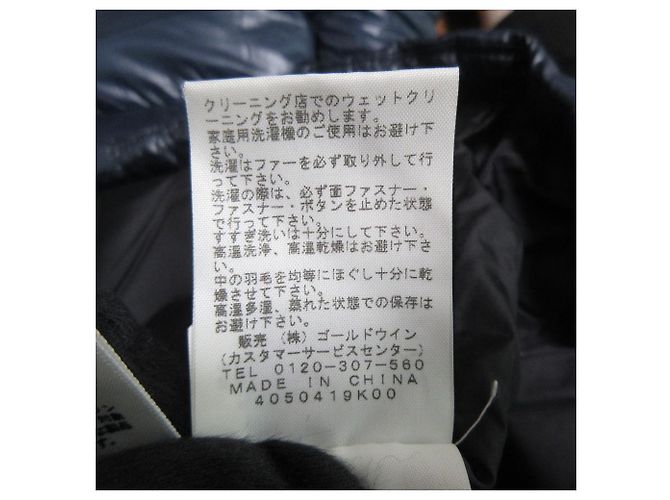 クリーニング店でのウェットクリ
ーニングをお勧めします。
家庭用洗濯機のご使用はお避け下
さい。
洗濯はファーを必ず取り外して行
って下さい。
洗濯の際は、必ず面ファスナー・
ファスナー・ボタンを止めた状態
で行って下さい。
すすぎ洗いは十分にして下さい。
高温洗浄、高温乾燥はお避け下さ
い。
中の羽毛を均等にほぐし十分に乾
燥させて下さい。
高温多湿、蒸れた状態での保存は
お避け下さい。
販売 (株) ゴールドウイン
(カスタマーサービスセンター)
TEL 0120-307-560
MADE IN CHINA
4050419K00
す。